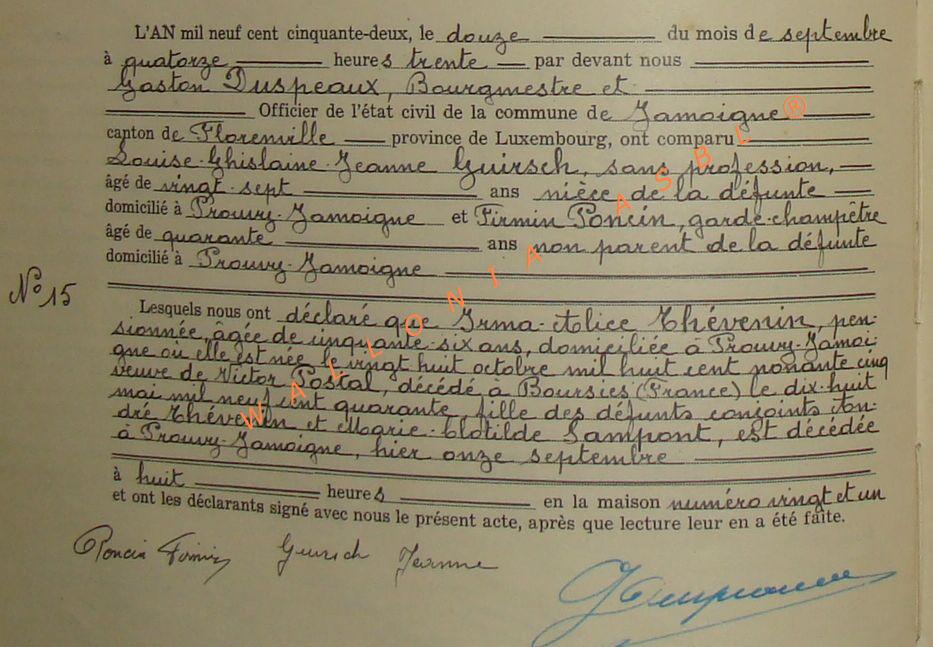 L'AN mil neuf cent cinquante-deux, le douze du mois de septembre
à quatorze heures trente par devant nous
Gaston Duspeaux, Bourgmestre et
Officier de l'état civil de la commune de Jamoigne
canton de Florenville province de Luxembourg, ont comparu
Louise-Ghislaine-Jeanne Guirsch, sans profession,
âgé de vingt-sept ans nièce de la défunte
domicilié à Prouvy-Jamoigne et Firmin Poncin, garde-champêtre
âgé de quarante ans non parent de la défunte
domicilié à Prouvy-Jamoigne
N° 15
Lesquels nous ont déclaré que Irma-Alice Thévenin, pen-
sionnée, âgée de cinquante-six ans, domiciliée à Prouvy-Jamoi-
gne où elle est née le vingt-huit octobre mil huit cent nonante cinq
veuve de Victor Postal, décédé à Boursies (France) le dix-huit
mai mil neuf cent quarante, fille des défunts conjoints An-
dré Thévenin et Marie-Clotilde Lampont, est décédée
à Prouvy-Jamoigne, hier onze septembre
à huit heures en la maison numéro vingt et un
et ont les déclarants signé avec nous le présent acte, après que lecture leur en a été faite.
Poncin Firmin Guirsch Jeanne
WALLONIA ASBL ®